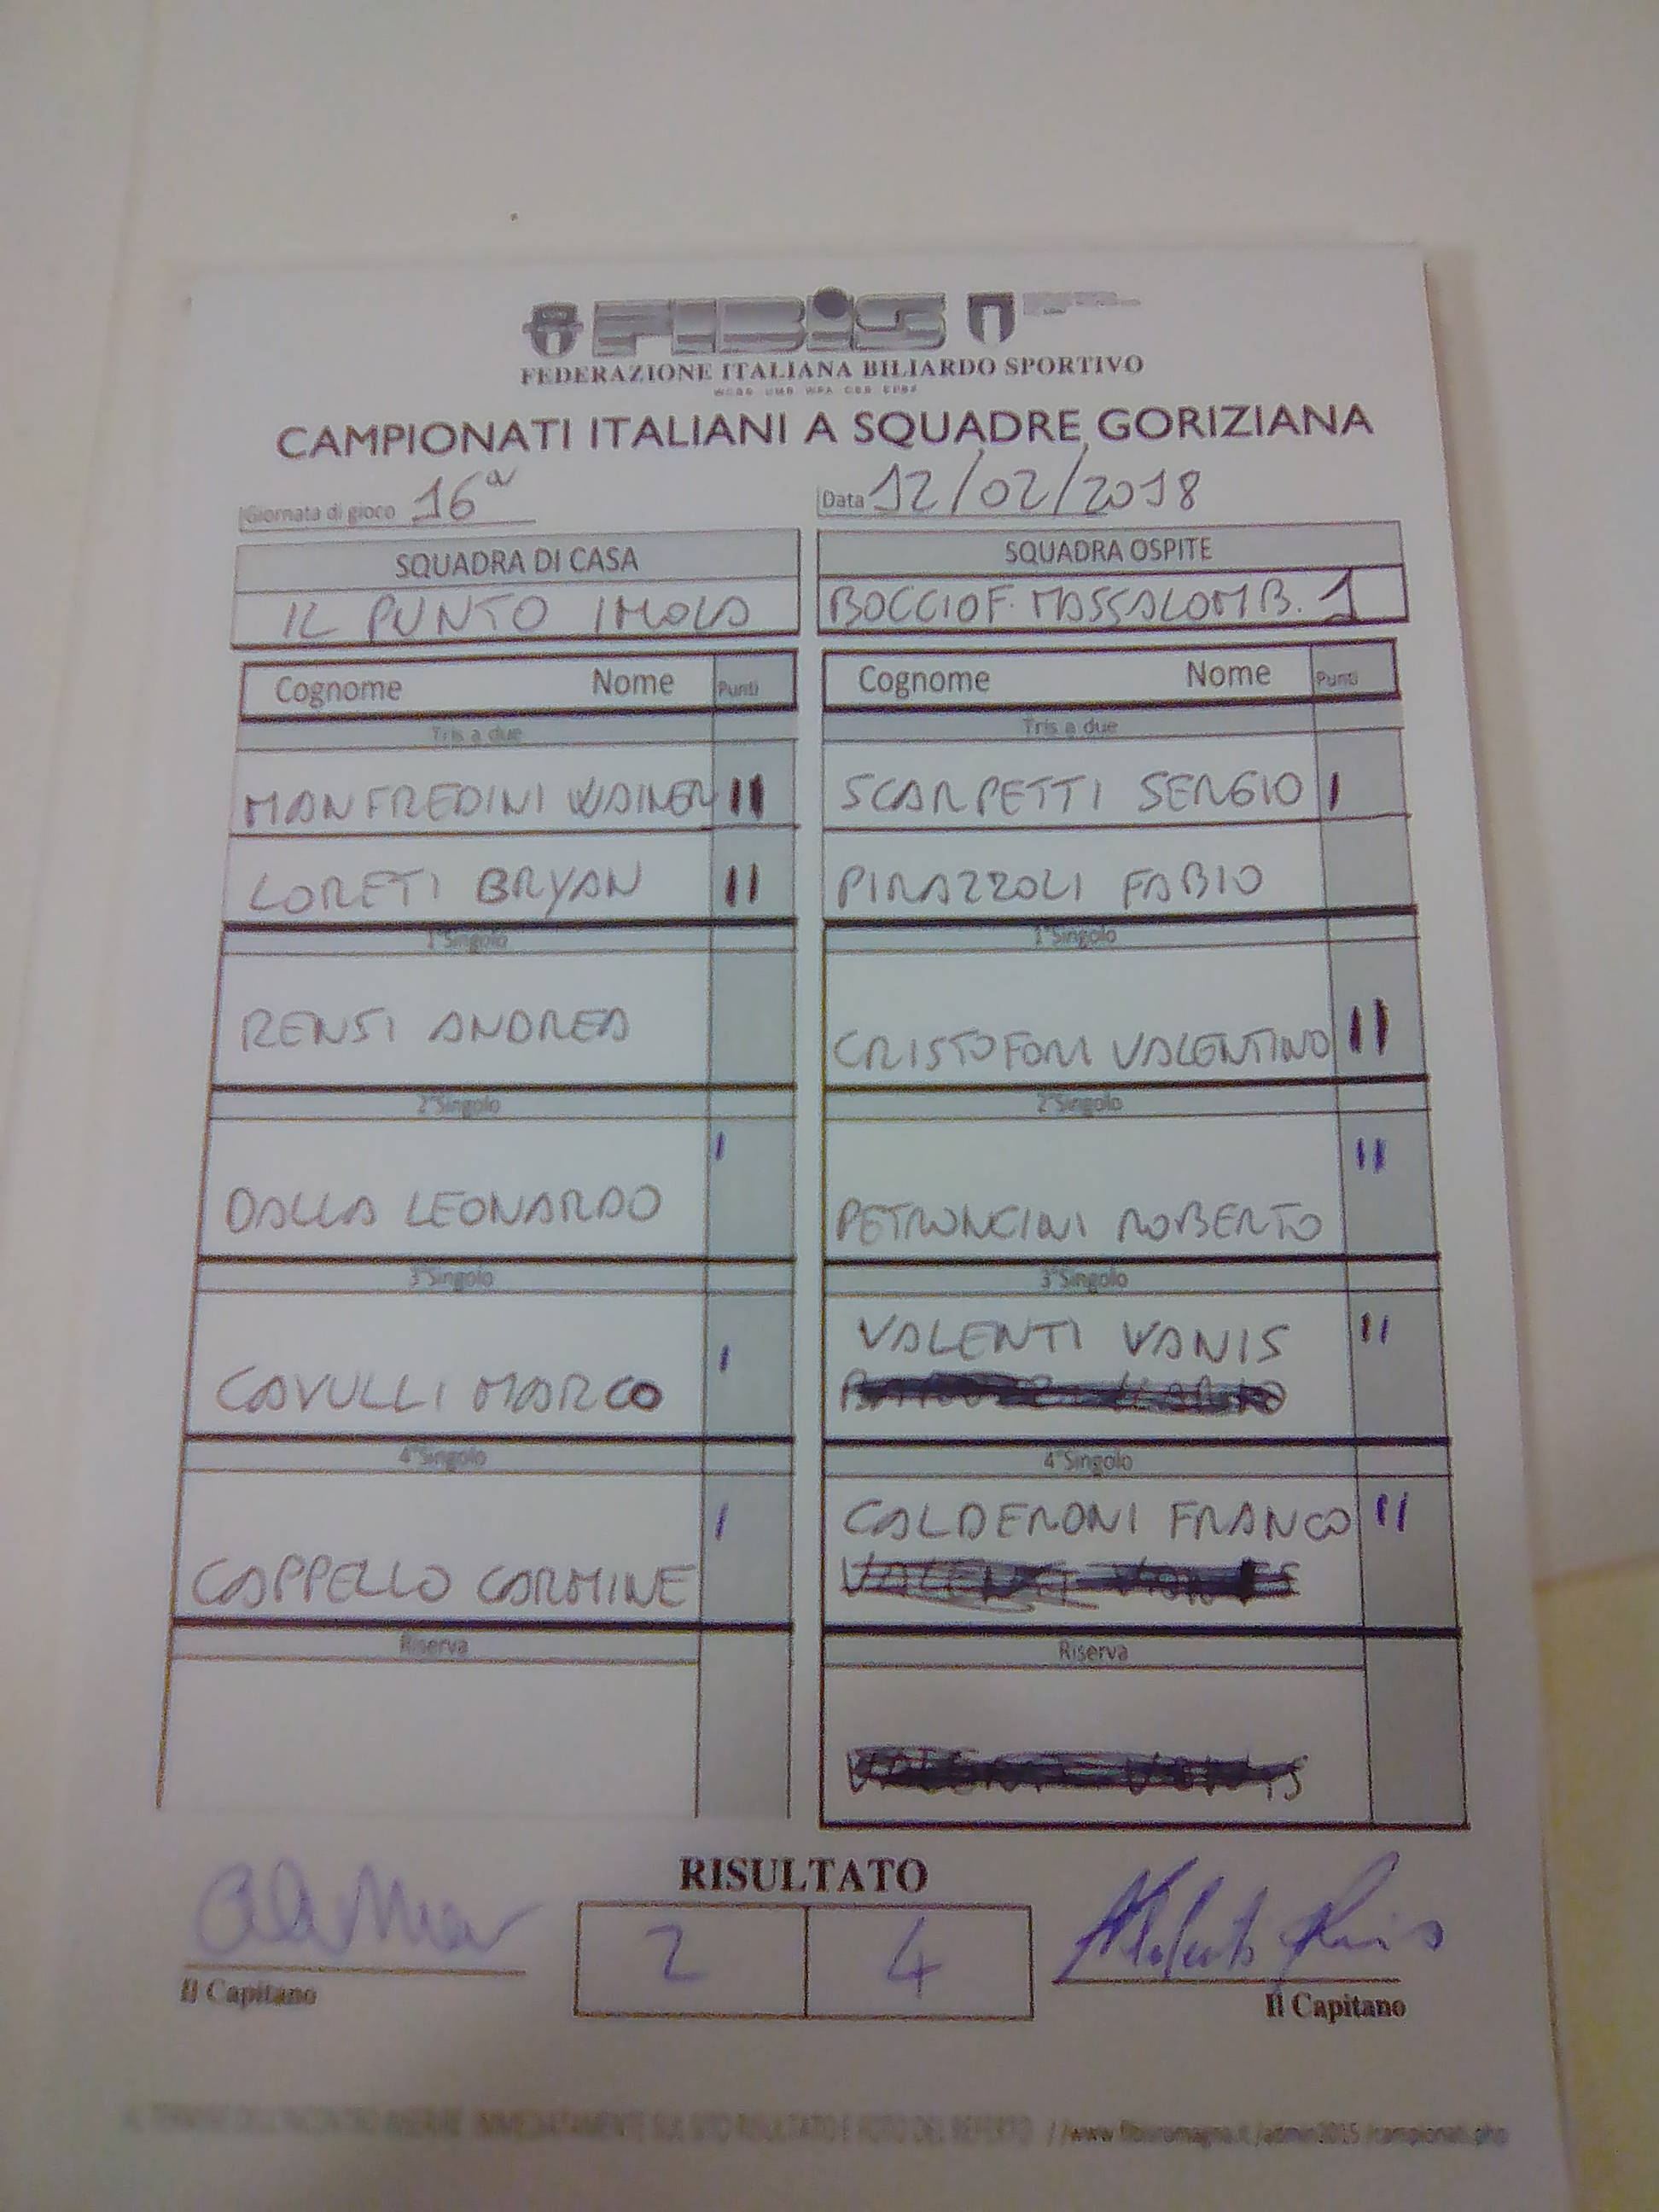 FIBiS
FEDERAZIONE ITALIANA BILIARDO SPORTIVO
CAMPIONATI ITALIANI A SQUADRE GORIZIANA
Giornata di gioco 16a Data 12/02/2018
SQUADRA DI CASA SQUADRA OSPITE
IL PUNTO IMOLA BOCCIOF. MASSALOMB. 1
Cognome Nome Punti Cognome Nome Punti
Tris a due Tris a due
MANFREDINI WAINER II SCARPETTI SERGIO I
LORETI BRYAN II PIRAZZOLI FABIO
1°Singolo 1°Singolo
RENSI ANDREA CRISTOFORI VALENTINO II
2°Singolo 2°Singolo
DALLA LEONARDO I PETRONCINI ROBERTO II
3°Singolo 3°Singolo
VALENTI VANIS II
CAVULLI MARCO I
4°Singolo 4°Singolo
CALDERONI FRANCO II
CAPPELLO CARMINE I
Riserva Riserva
RISULTATO
2 4
Il Capitano Il Capitano
AL TERMINE DELL'INCONTRO INSERIRE IMMEDIATAMENTE SUL SITO RISULTATO E FOTO DEL REFERTO //www.fibisromagna.it/admin2015/campionati.php